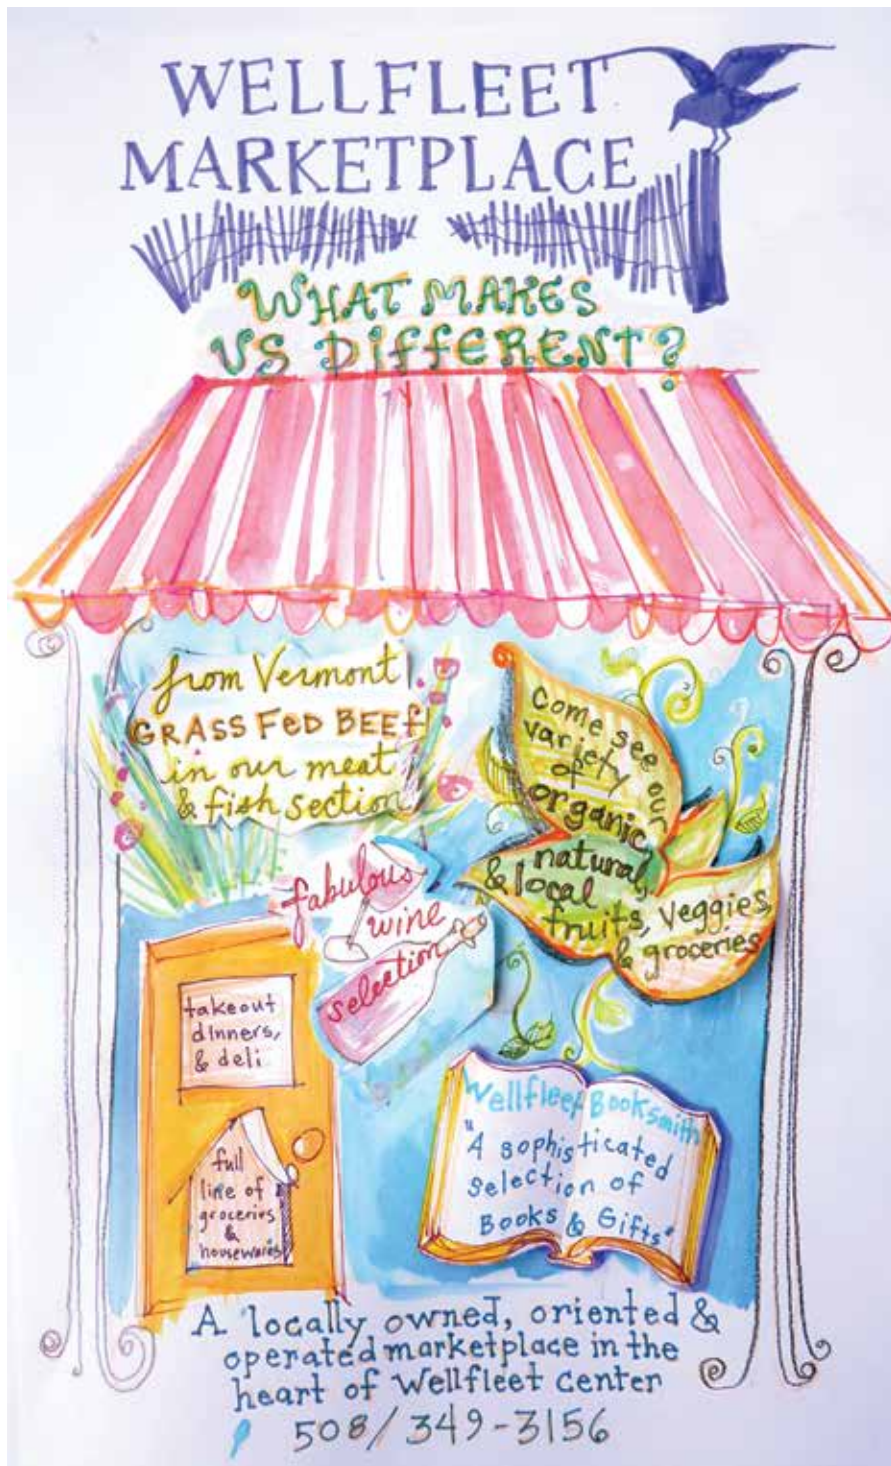 WELLFLEET
MARKETPLACE
WHAT MAKES
US DIFFERENT?
from Vermont
GRASS FED BEEF
in our meat
& fish section
Come see our
variety
of
organic,
natural,
& local
fruits, veggies,
& groceries
fabulous
wine
selection
takeout
dinners,
& deli
full
line of
groceries
&
housewares
Wellfleet Booksmith
"A sophisticated
selection of
Books & Gifts"
A locally owned, oriented &
operated marketplace in the
heart of Wellfleet center
508/349-3156